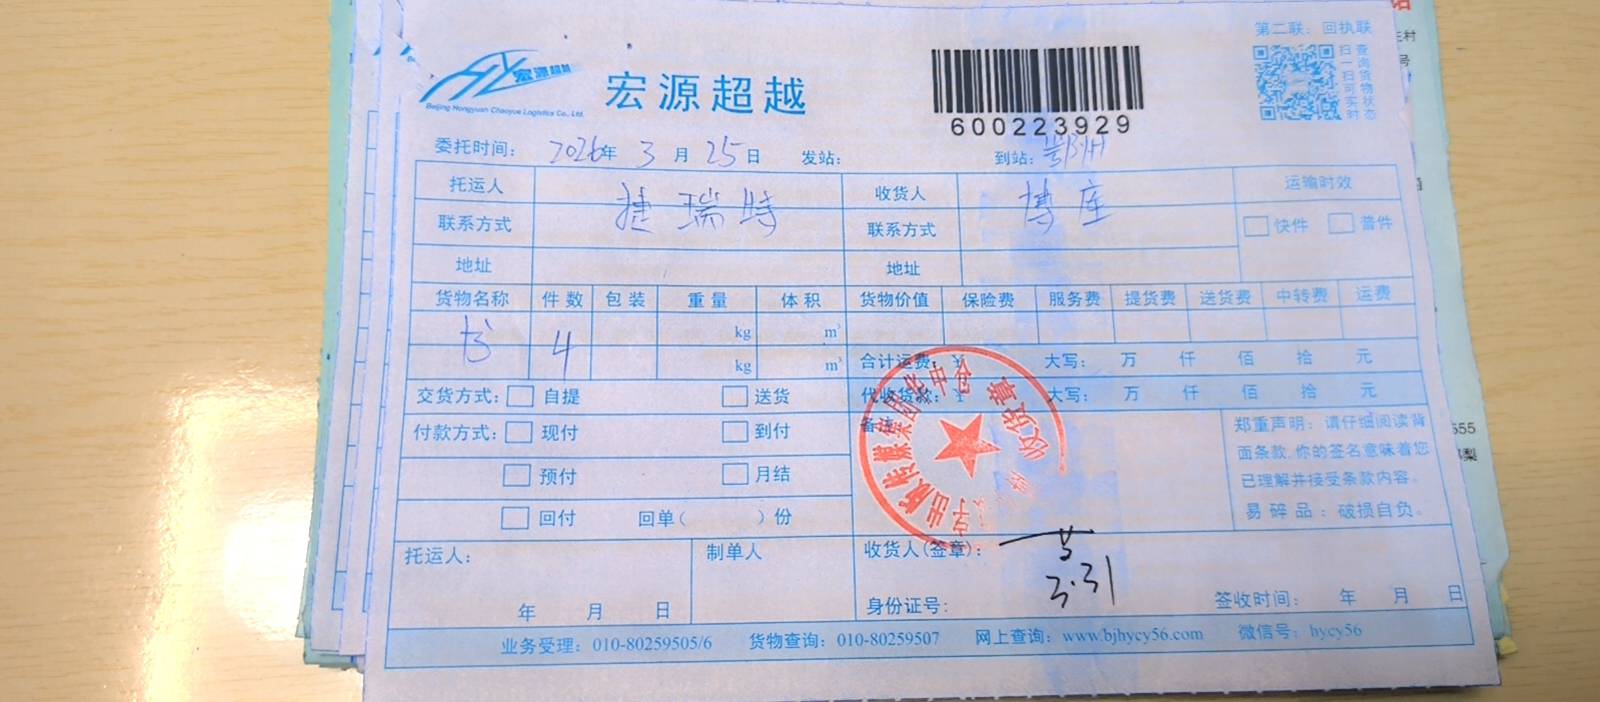 第二联：回执联
宏源超越
Beijing Hongyuan Chaoyue Logistics Co., Ltd.
宏源超越
600223929
扫一扫可实时
查询货物状态
委托时间： 2026年 3 月 25 日 发站： 到站：鄂州
托运人 捷瑞特 收货人 博库 运输时效
联系方式 联系方式 快件 普件
地址 地址
货物名称 件数 包装 重量 体积 货物价值 保险费 服务费 提货费 送货费 中转费 运费
书 4 kg m³
kg m³ 合计运费：¥ 大写： 万 仟 佰 拾 元
交货方式： 自提 送货 代收货款：¥ 大写： 万 仟 佰 拾 元
付款方式： 现付 到付 备注
预付 月结
回付 回单（ ）份
郑重声明：请仔细阅读背
面条款,你的签名意味着您
已理解并接受条款内容。
易碎品：破损自负。
出版传媒集团华中仓
收货章
托运人： 制单人 收货人(签章)：
3.31
年 月 日 身份证号: 签收时间： 年 月 日
业务受理：010-80259505/6 货物查询：010-80259507 网上查询：www.bjhycy56.com 微信号：hycy56
555